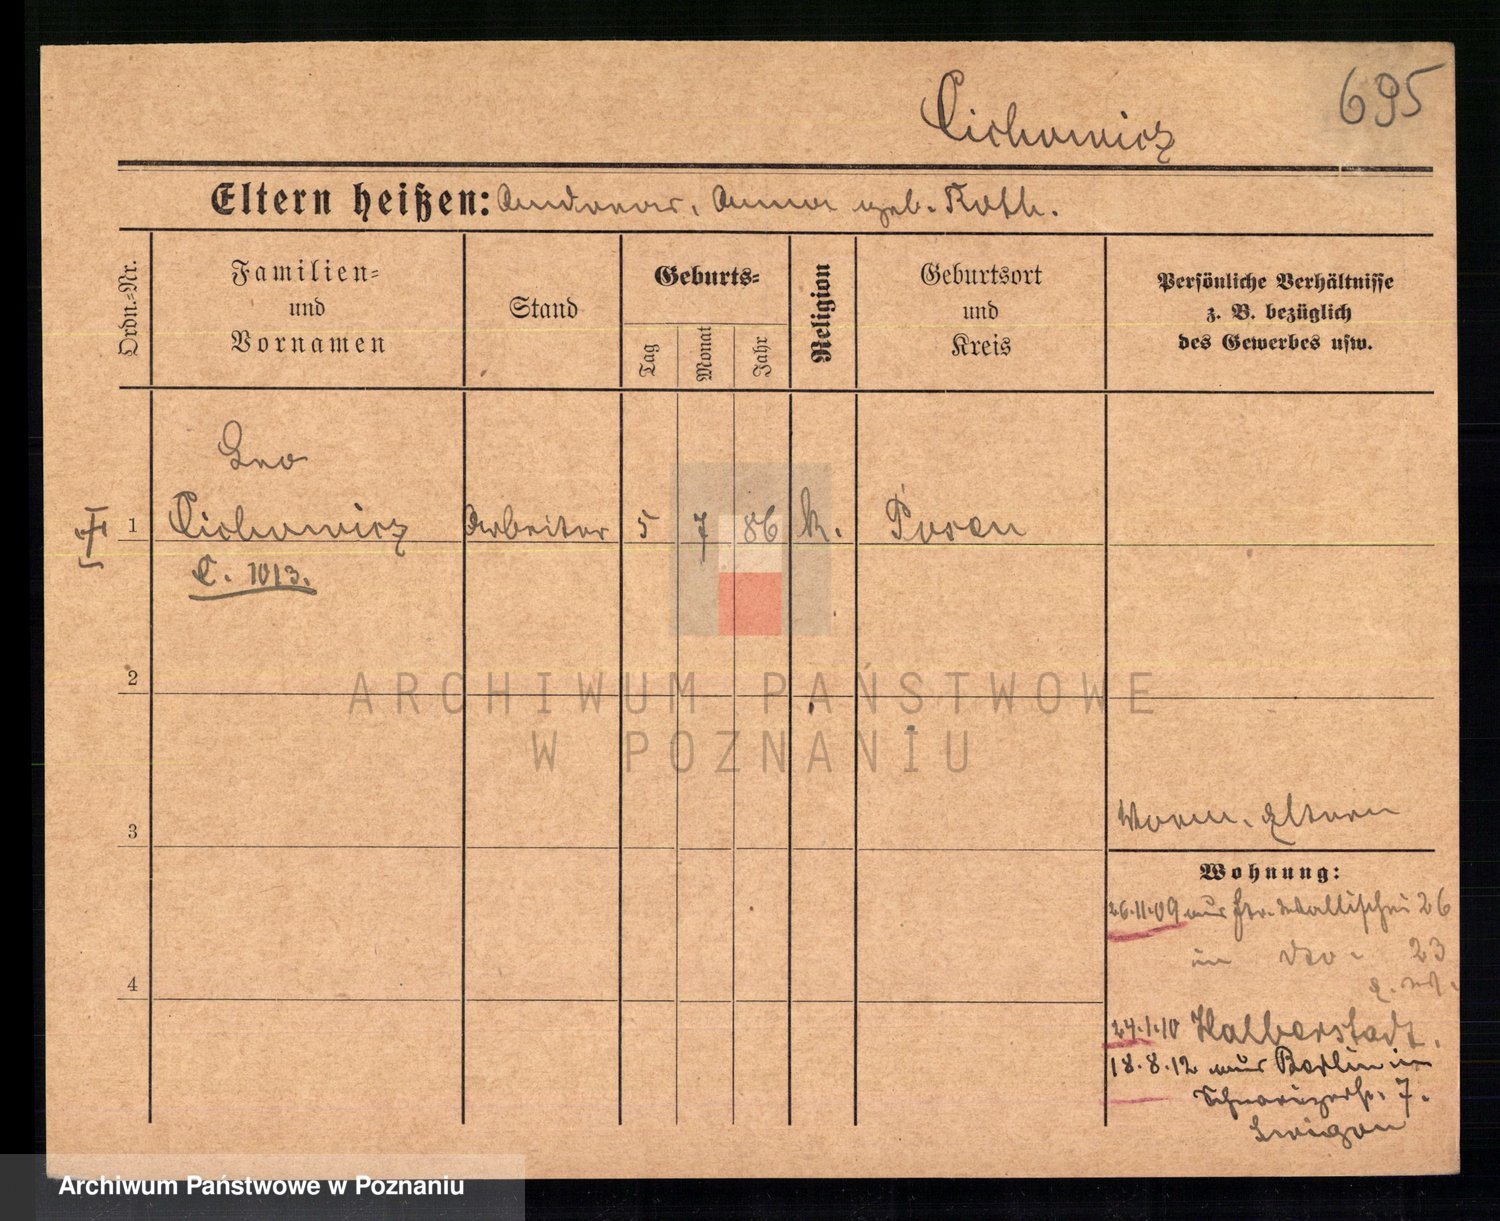 695
Cichowicz
Eltern heißen: Andreas, Anna geb. Roth.
Ordn.-Nr.
Familien-
und
Vornamen
Stand
Geburts-
Tag
Monat
Jahr
Religion
Geburtsort
und
Kreis
Persönliche Verhältnisse
z. B. bezüglich
des Gewerbes usw.
Leo
1 Cichowicz Arbeiter 5 7 86 k. Posen
C. 1013.
2
ARCHIWUM PAŃSTWOWE
W POZNANIU
3
Eltern
Wohnung:
26.11.09 aus Wallischei 26
in dto. 23
4
24.1.10 Halberstadt.
18.8.12 aus Berlin in
7.
Archiwum Państwowe w Poznaniu